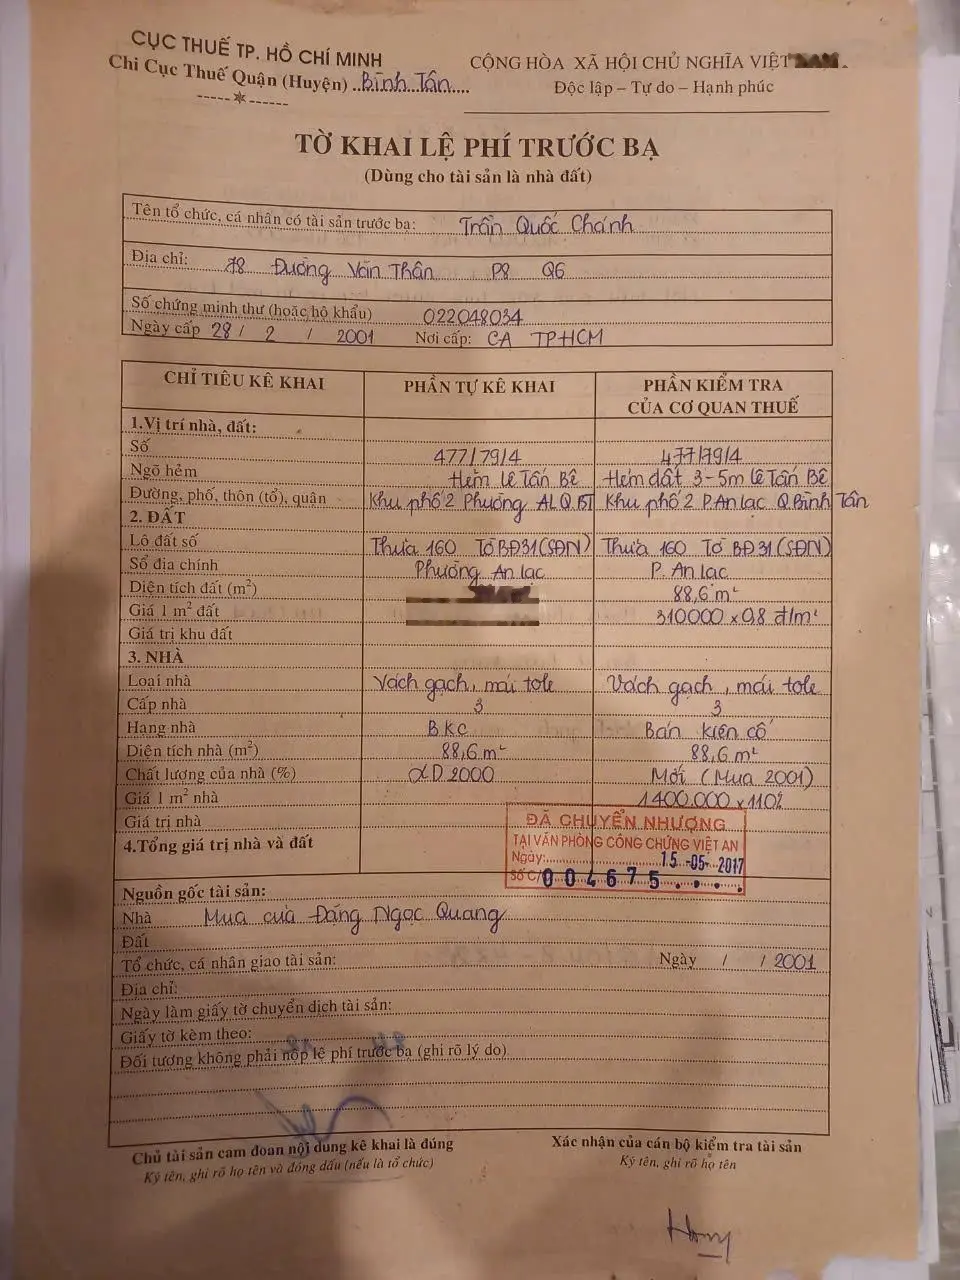 CỤC THUẾ TP. HỒ CHÍ MINH
Chi Cục Thuế Quận (Huyện) ..Bình Tân....
-----*------
CỘNG HÒA XÃ HỘI CHỦ NGHĨA VIỆT
Độc lập – Tự do – Hạnh phúc
TỜ KHAI LỆ PHÍ TRƯỚC BẠ
(Dùng cho tài sản là nhà đất)
Tên tổ chức, cá nhân có tài sản trước bạ: Trần Quốc Chánh
Địa chỉ: 78 Đường Văn Thân P8 Q6
Số chứng minh thư (hoặc hộ khẩu) 022048034
Ngày cấp 28 / 2 / 2001 Nơi cấp: CA TPHCM
CHỈ TIÊU KÊ KHAI PHẦN TỰ KÊ KHAI PHẦN KIỂM TRA
CỦA CƠ QUAN THUẾ
1.Vị trí nhà, đất:
Số 477/79/4 477/79/4
Ngõ hẻm Hẻm lê Tấn Bê Hẻm đất 3-5m lê Tấn Bê
Đường, phố, thôn (tổ), quận Khu phố 2 Phường AL Q.BT Khu phố 2 P.An lạc Q Bình Tân
2. ĐẤT
Lô đất số Thửa 160 Tờ BĐ31 (SĐN) Thửa 160 Tờ BĐ31 (SĐN)
Sổ địa chính Phường An lạc P. An lạc
Diện tích đất (m²) 88,6 m²
Giá 1 m² đất 310000 x 0,8 đ/m²
Giá trị khu đất
3. NHÀ
Loại nhà Vách gạch, mái tole Vách gạch, mái tole
Cấp nhà 3 3
Hạng nhà BKC Bán kiên cố
Diện tích nhà (m²) 88,6 m² 88,6 m²
Chất lượng của nhà (%) XD 2000 Mới (Mua 2001)
Giá 1 m² nhà 1400.000 x 110%
Giá trị nhà
4.Tổng giá trị nhà và đất
ĐÃ CHUYỂN NHƯỢNG
TẠI VĂN PHÒNG CÔNG CHỨNG VIỆT AN
Ngày: 15-05-2017
Số C/ 004675
Nguồn gốc tài sản:
Nhà Mua của Đặng Ngọc Quang
Đất
Tổ chức, cá nhân giao tài sản: Ngày / / 2001
Địa chỉ:
Ngày làm giấy tờ chuyển dịch tài sản:
Giấy tờ kèm theo:
Đối tượng không phải nộp lệ phí trước bạ (ghi rõ lý do)
Chủ tài sản cam đoan nội dung kê khai là đúng Xác nhận của cán bộ kiểm tra tài sản
Ký tên, ghi rõ họ tên và đóng dấu (nếu là tổ chức) Ký tên, ghi rõ họ tên